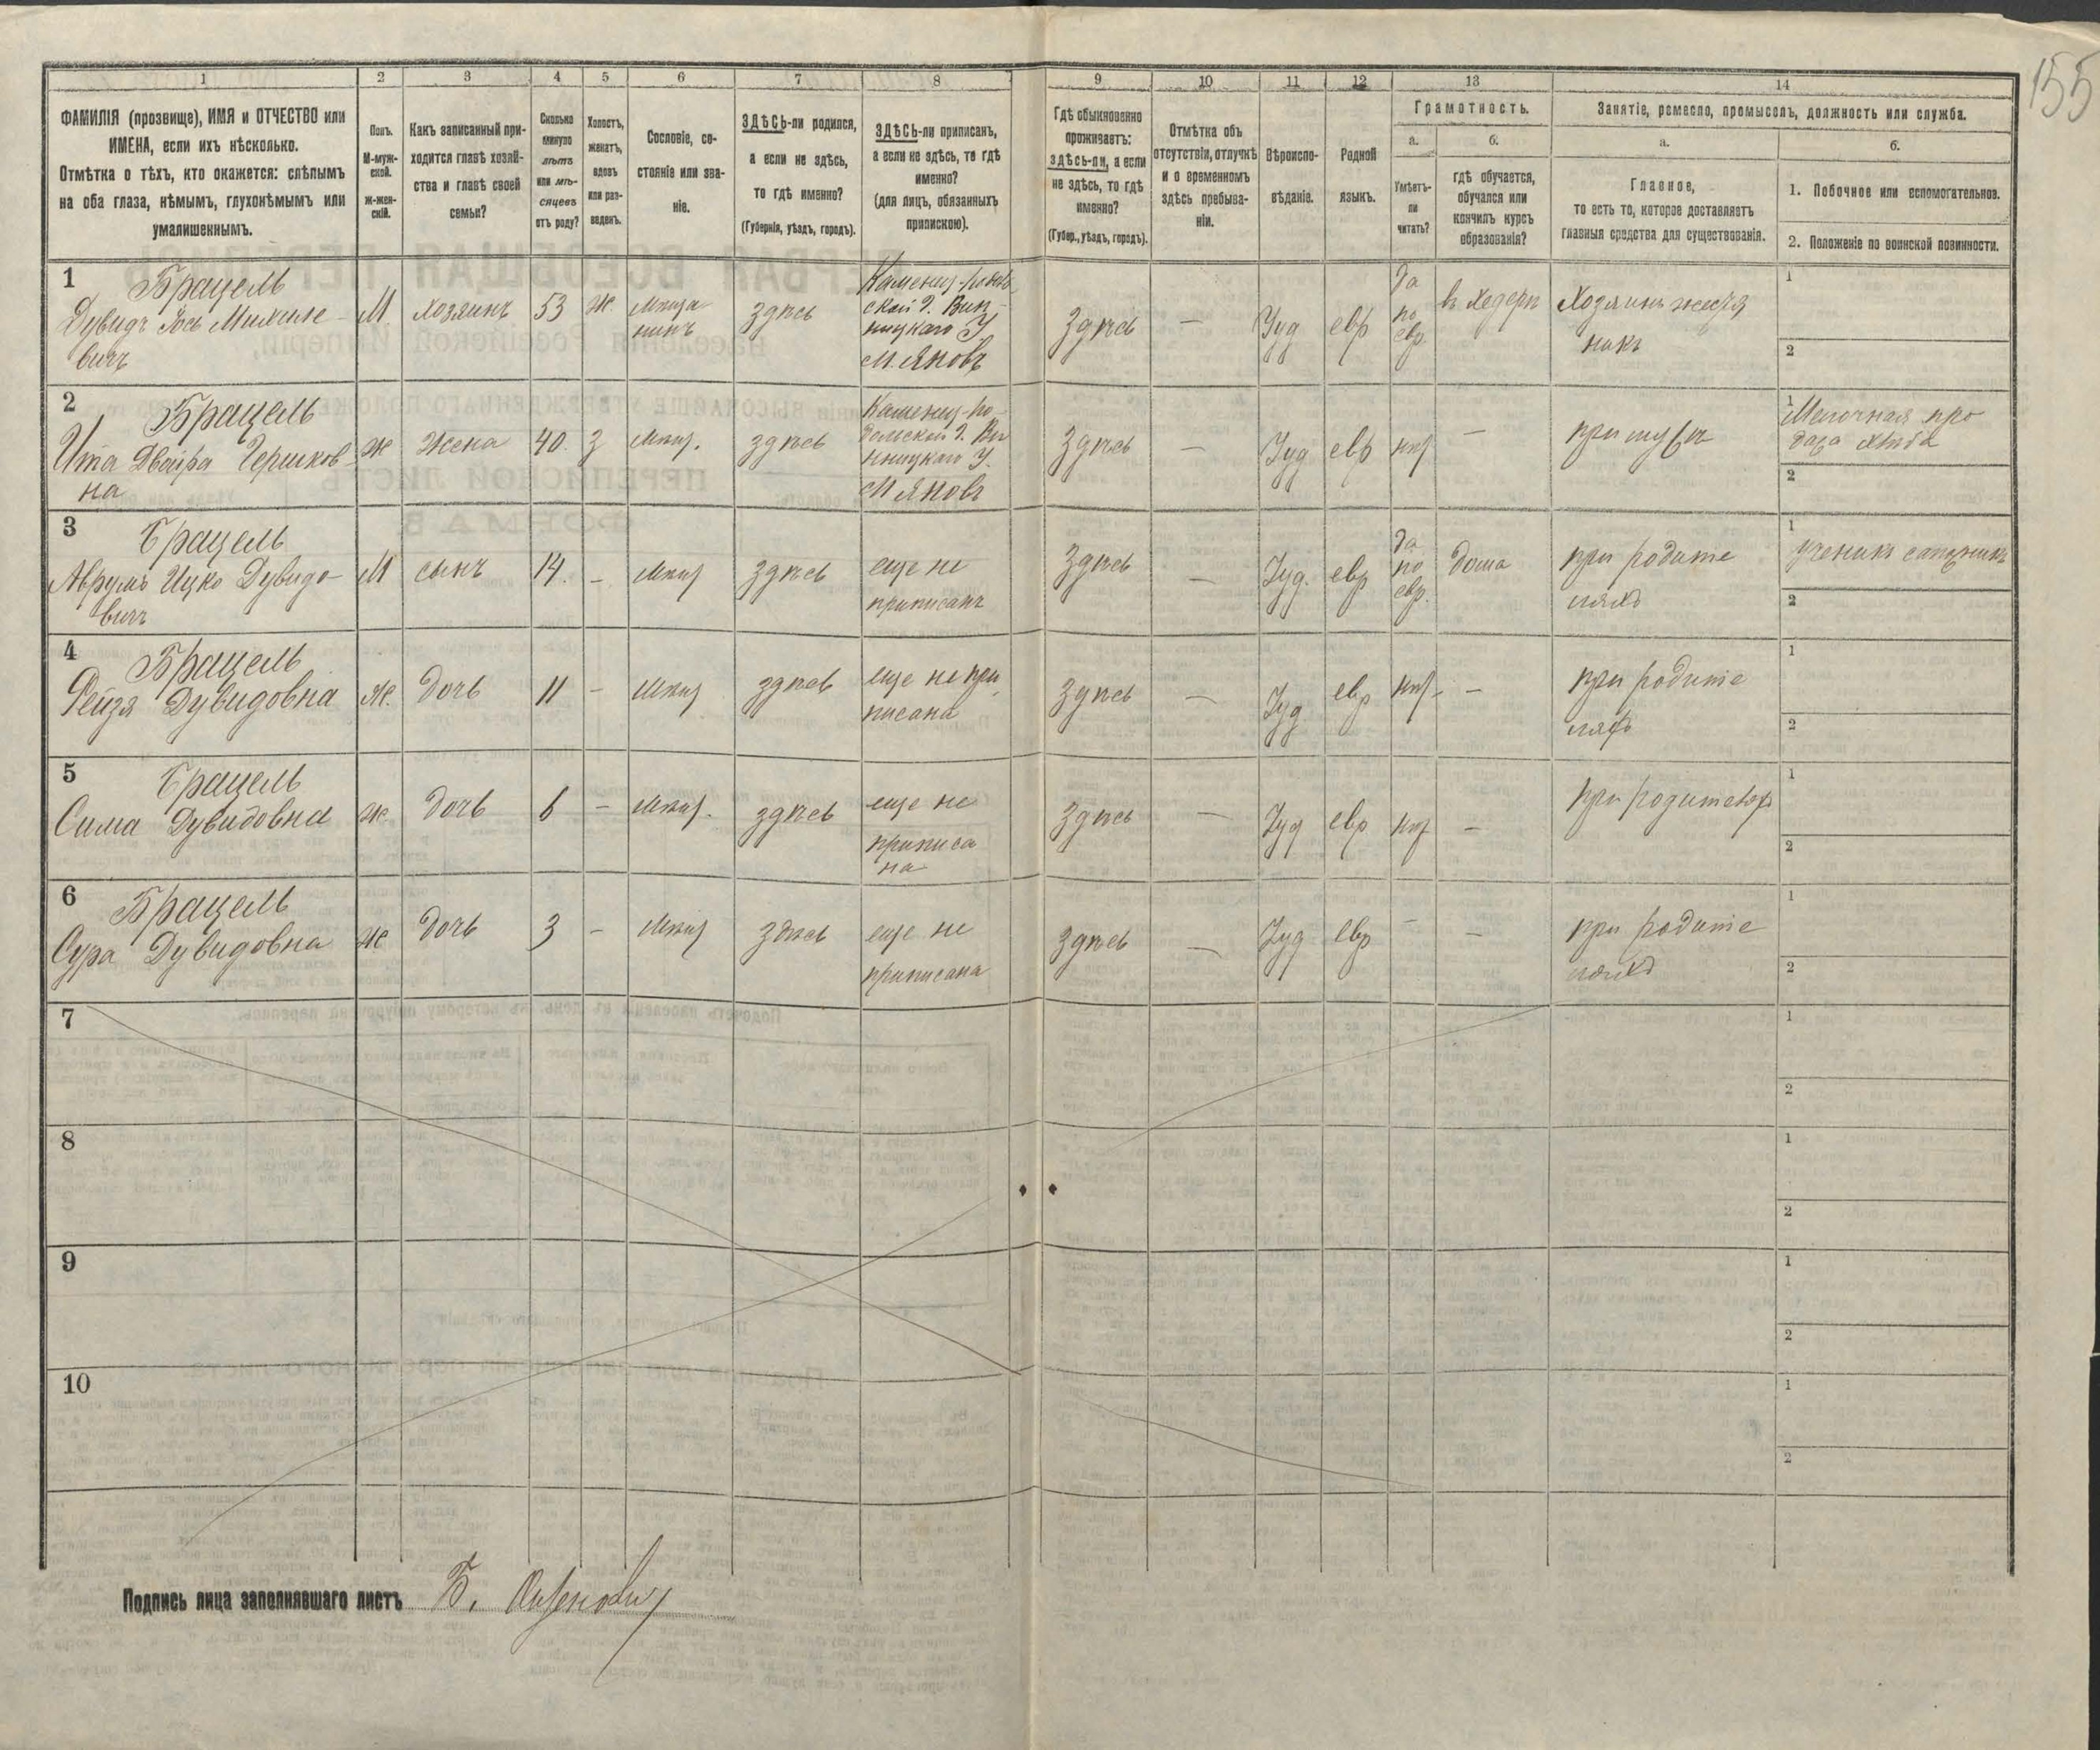 155
1 2 3 4 5 6 7 8 9 10 11 12 13 14
ФАМИЛІЯ (прозвище), ИМЯ и ОТЧЕСТВО или
ИМЕНА, если ихъ нѣсколько.
Отмѣтка о тѣхъ, кто окажется: слѣпымъ
на оба глаза, нѣмымъ, глухонѣмымъ или
умалишеннымъ.
Полъ.
М-муж-
ской.
Ж-жен-
скій.
Какъ записанный при-
ходится главѣ хозяй-
ства и главѣ своей
семьи?
Сколько
минуло
лѣтъ
или мѣ-
сяцевъ
отъ роду?
Холостъ,
женатъ,
вдовъ
или раз-
веденъ.
Сословіе, со-
стояніе или зва-
ніе.
ЗДѢСЬ-ли родился,
а если не здѣсь,
то гдѣ именно?
(Губернія, уѣздъ, городъ).
ЗДѢСЬ-ли приписанъ,
а если не здѣсь, то гдѣ
именно?
(для лицъ, обязанныхъ
припискою).
Гдѣ обыкновенно
проживаетъ:
здѣсь-ли, а если
не здѣсь, то гдѣ
именно?
(Губер., уѣздъ, городъ).
Отмѣтка объ
отсутствіи, отлучкѣ
и о временномъ
здѣсь пребыва-
ніи.
Вѣроиспо-
вѣданіе.
Родной
языкъ.
Грамотность.
а. б.
Умѣетъ-
ли
читать?
гдѣ обучается,
обучался или
кончилъ курсъ
образованія?
Занятіе, ремесло, промыселъ, должность или служба.
а. б.
Главное,
то есть то, которое доставляетъ
главныя средства для существованія.
1. Побочное или вспомогательное.
2. Положеніе по воинской повинности.
1
Брацель
Дувидъ Іось Михиле-
вичъ
М.
хозяинъ
53
ж
мѣща
нинъ
здѣсь
Каменец-подоль
ской г. Вин-
ницкаго У
м. Яновъ
Здѣсь
—
Іуд
евр
Да
по
евр.
въ хедерѣ
1
2
2
Брацель
Ита Двойра Гершков-
на
ж
жена
40.
З
мѣщ.
здѣсь
Каменец-по-
дольской г. Ви
нницкаго У.
М Яновъ
Здѣсь
—
Іуд
евр
нѣт
—
при мужѣ
1 Мелочная про
дажа хлѣба
2
3
Брацель
Аврумъ Ицко Дувидо-
вичъ
М
сынъ
14.
—
мѣщ
здѣсь
еще не
приписанъ
Здѣсь
—
Іуд.
евр
да
по
евр.
дома
при родите
ляхъ
1
ученикъ сапожникъ
2
4
Брацель
Рейзя Дувидовна
Ж.
дочь
11
—
мѣщ
здѣсь
еще не при
писана
Здѣсь
—
Іуд
евр
нѣт.
—
при родите
ляхъ
1
2
5
Брацель
Сима Дувидовна
ж
дочь
6
—
мѣщ.
здѣсь
еще не
приписа
на
Здѣсь
—
Іуд
евр
нѣт
—
при родителях
1
2
6
Брацель
Сура Дувидовна
ж
дочь
3
—
мѣщ
здѣсь
еще не
приписана
Здѣсь
—
Іуд
евр
—
—
при родите
ляхъ
1
2
7
1
2
8
1
2
9
1
2
10
1
2
Подпись лица заполнявшаго листъ Б.